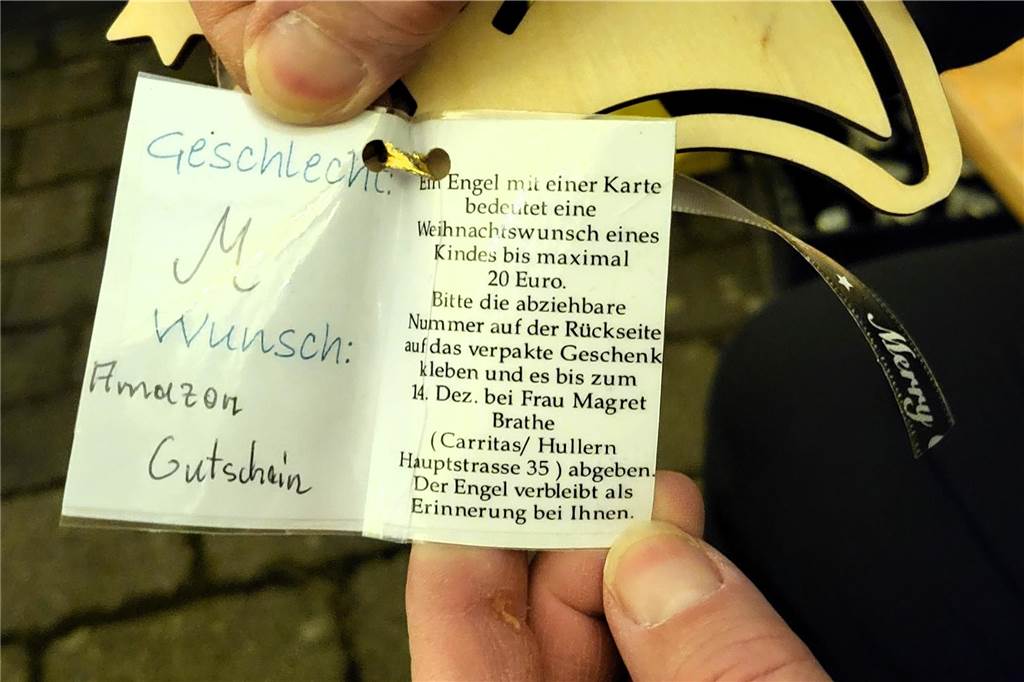 Geschlecht:
M
Wunsch:
Amazon
Gutschein
Ein Engel mit einer Karte
bedeutet eine
Weihnachtswunsch eines
Kindes bis maximal
20 Euro.
Bitte die abziehbare
Nummer auf der Rückseite
auf das verpakte Geschenk
kleben und es bis zum
14. Dez. bei Frau Magret
Brathe
( Carritas/ Hullern
Hauptstrasse 35 ) abgeben.
Der Engel verbleibt als
Erinnerung bei Ihnen.
Merry